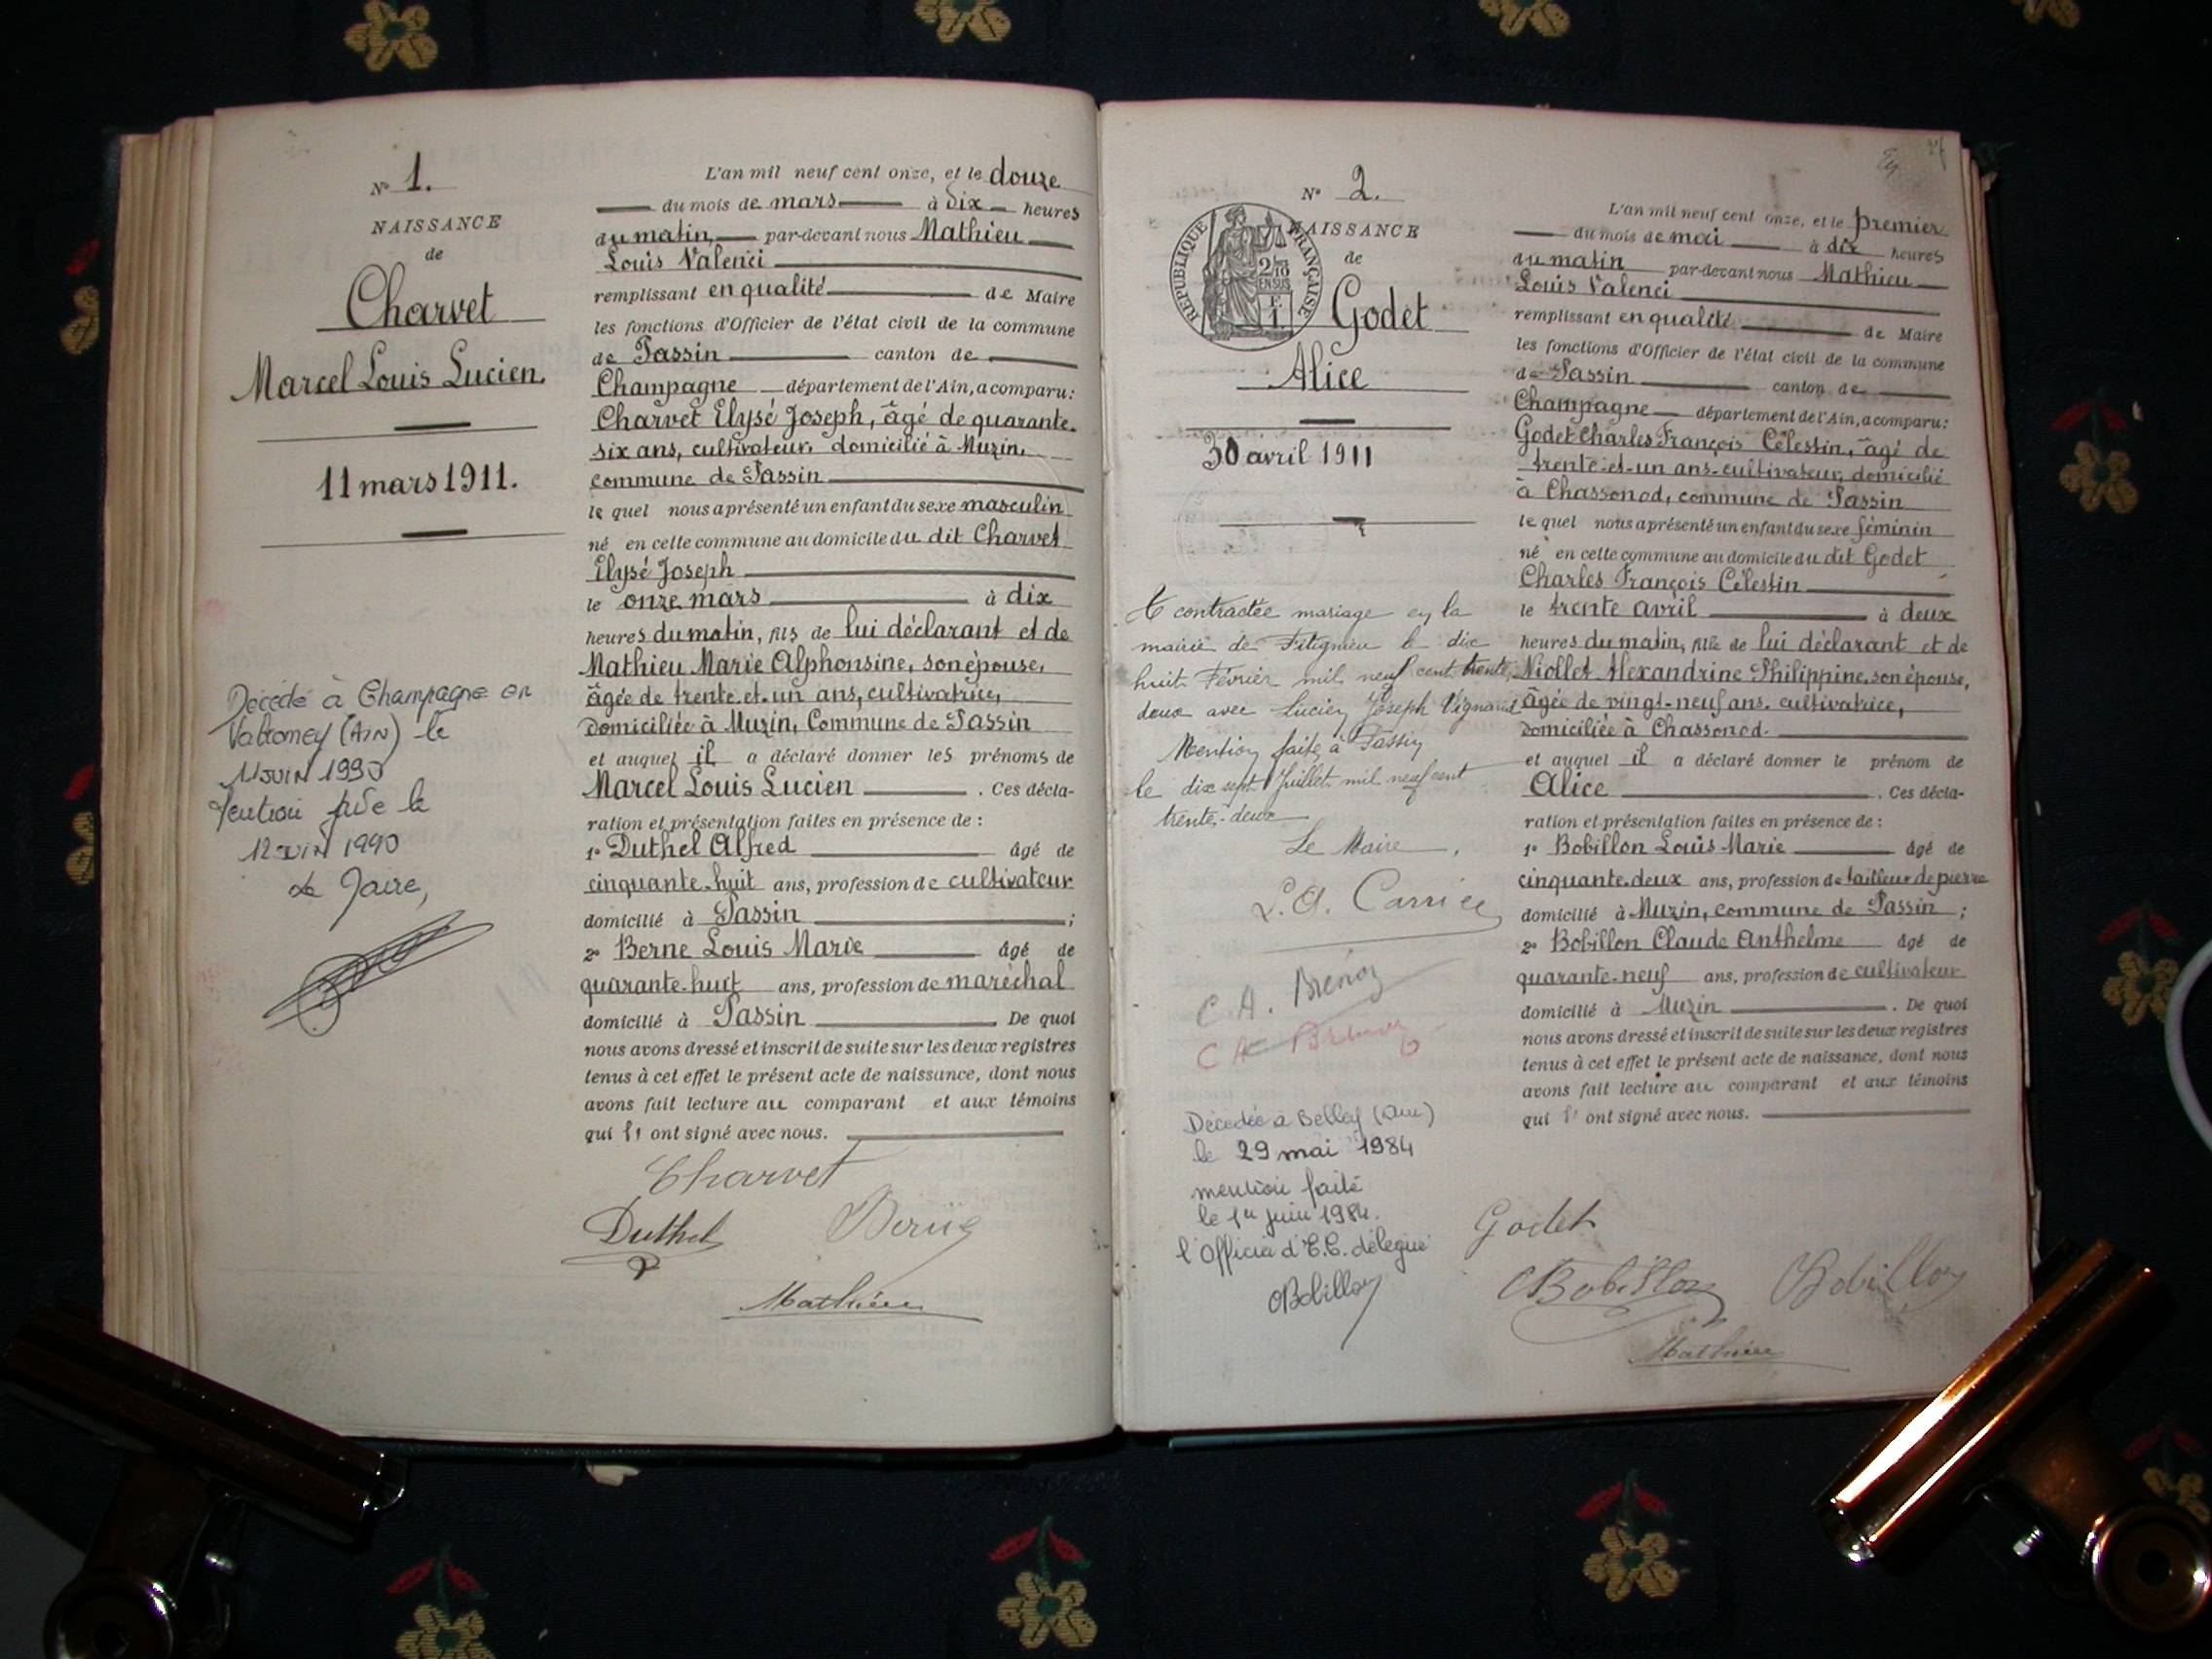 N° 1.
NAISSANCE
de
Charvet
Marcel Louis Lucien.
11 mars 1911.
Décédé à Champagne en
Valromey (Ain) le
11 JUIN 1990
faite le
12 JUIN 1990
Le Maire,
L'an mil neuf cent onze, et le douze
du mois de mars à dix heures
du matin, par-devant nous Mathieu
Louis Valenci
remplissant en qualité de Maire
les fonctions d'Officier de l'état civil de la commune
de Passin canton de
Champagne département de l'Ain, a comparu:
Charvet Elysé Joseph, âgé de quarante-
six ans, cultivateur, domicilié à Muzin,
commune de Passin
le quel nous a présenté un enfant du sexe masculin
né en cette commune au domicile du dit Charvet
Elysé Joseph
le onze mars à dix
heures du matin, fils de lui déclarant et de
Mathieu Marie Alphonsine, son épouse,
âgée de trente-et-un ans, cultivatrice,
domiciliée à Muzin, Commune de Passin
et auquel il a déclaré donner les prénoms de
Marcel Louis Lucien. Ces décla-
ration et présentation faites en présence de :
1° Duthel Alfred âgé de
cinquante-huit ans, profession de cultivateur
domicilié à Passin ;
2° Berne Louis Marie âgé de
quarante-huit ans, profession de maréchal
domicilié à Passin. De quoi
nous avons dressé et inscrit de suite sur les deux registres
tenus à cet effet le présent acte de naissance, dont nous
avons fait lecture au comparant et aux témoins
qui ont signé avec nous.
Charvet
Duthel Berne
Mathieu
N° 2.
REPUBLIQUE FRANÇAISE
2/10
EN SUS
NAISSANCE
de
Godet
Alice
30 avril 1911
contractée mariage en la
mairie de le dix
huit Février mil neuf cent trente
deux avec Lucien Joseph Vignand
Mention faite à Passin
le dix sept Juillet mil neuf cent
trente-deux
Le Maire,
Décédée à Belley (Ain)
le 29 mai 1984
mention faite
le 1er juin 1984.
l'Officier d'E.C. délégué
Bobillon
L'an mil neuf cent onze, et le premier
du mois de mai à dix heures
du matin par-devant nous Mathieu
Louis Valenci
remplissant en qualité de Maire
les fonctions d'Officier de l'état civil de la commune
de Passin canton de
Champagne département de l'Ain, a comparu:
Godet Charles François Célestin, âgé de
trente-et-un ans, cultivateur, domicilié
à Chassonod, commune de Passin
le quel nous a présenté un enfant du sexe féminin
né en cette commune au domicile du dit Godet
Charles François Célestin
le trente avril à deux
heures du matin, fille de lui déclarant et de
Niollet Alexandrine Philippine, son épouse,
âgée de vingt-neuf ans, cultivatrice,
domiciliée à Chassonod.
et auquel il a déclaré donner le prénom de
Alice. Ces décla-
ration et présentation faites en présence de :
1° Bobillon Louis Marie âgé de
cinquante-deux ans, profession de tailleur de pierre
domicilié à Muzin, commune de Passin ;
2° Bobillon Claude Anthelme âgé de
quarante-neuf ans, profession de cultivateur
domicilié à Muzin. De quoi
nous avons dressé et inscrit de suite sur les deux registres
tenus à cet effet le présent acte de naissance, dont nous
avons fait lecture au comparant et aux témoins
qui ont signé avec nous.
Godet
Bobillon Bobillon
Mathieu